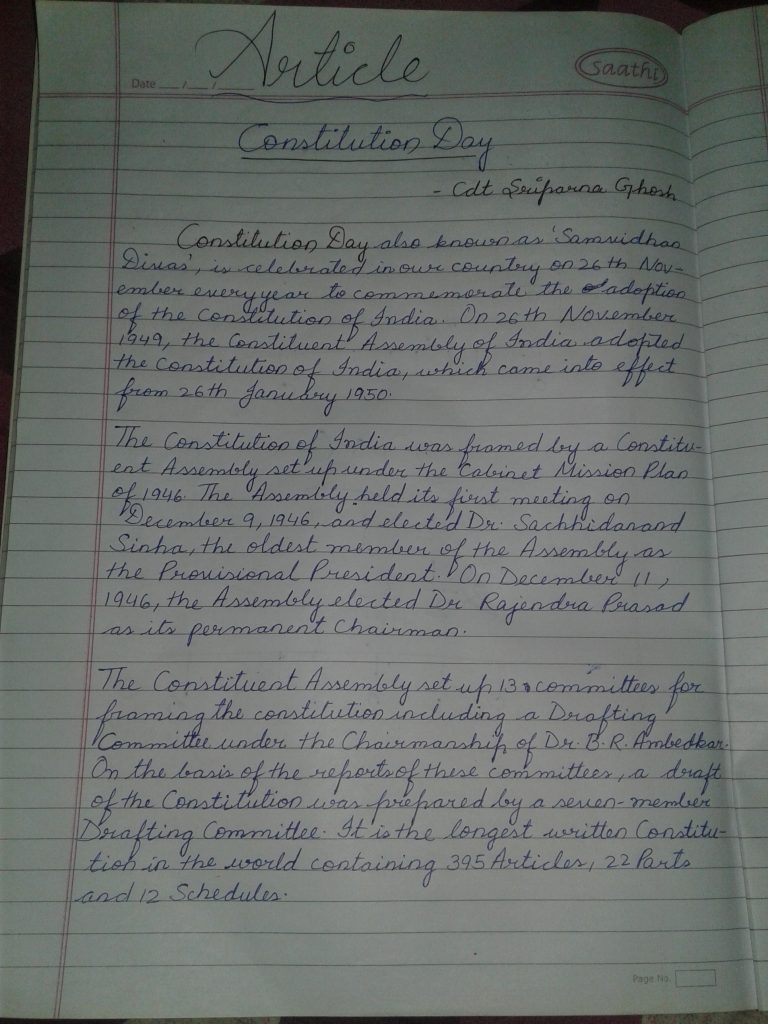 Article
Saathi
Date __/__/____
Constitution Day
- Cdt Sriparna Ghosh
Constitution Day also known as 'Samvidhan
Divas', is celebrated in our country on 26th Nov-
ember every year to commemorate the adoption
of the Constitution of India. On 26th November
1949, the Constituent Assembly of India adopted
the Constitution of India, which came into effect
from 26th January 1950.
The Constitution of India was framed by a Constitu-
ent Assembly set up under the Cabinet Mission Plan
of 1946. The Assembly held its first meeting on
December 9, 1946, and elected Dr. Sachhidanand
Sinha, the oldest member of the Assembly as
the Provisional President. On December 11,
1946, the Assembly elected Dr Rajendra Prasad
as its permanent Chairman.
The Constituent Assembly set up 13 committees for
framing the constitution including a Drafting
Committee under the Chairmanship of Dr. B. R. Ambedkar.
On the basis of the reports of these committees, a draft
of the Constitution was prepared by a seven-member
Drafting Committee. It is the longest written Constitu-
tion in the world containing 395 Articles, 22 Parts
and 12 Schedules.
Page No.